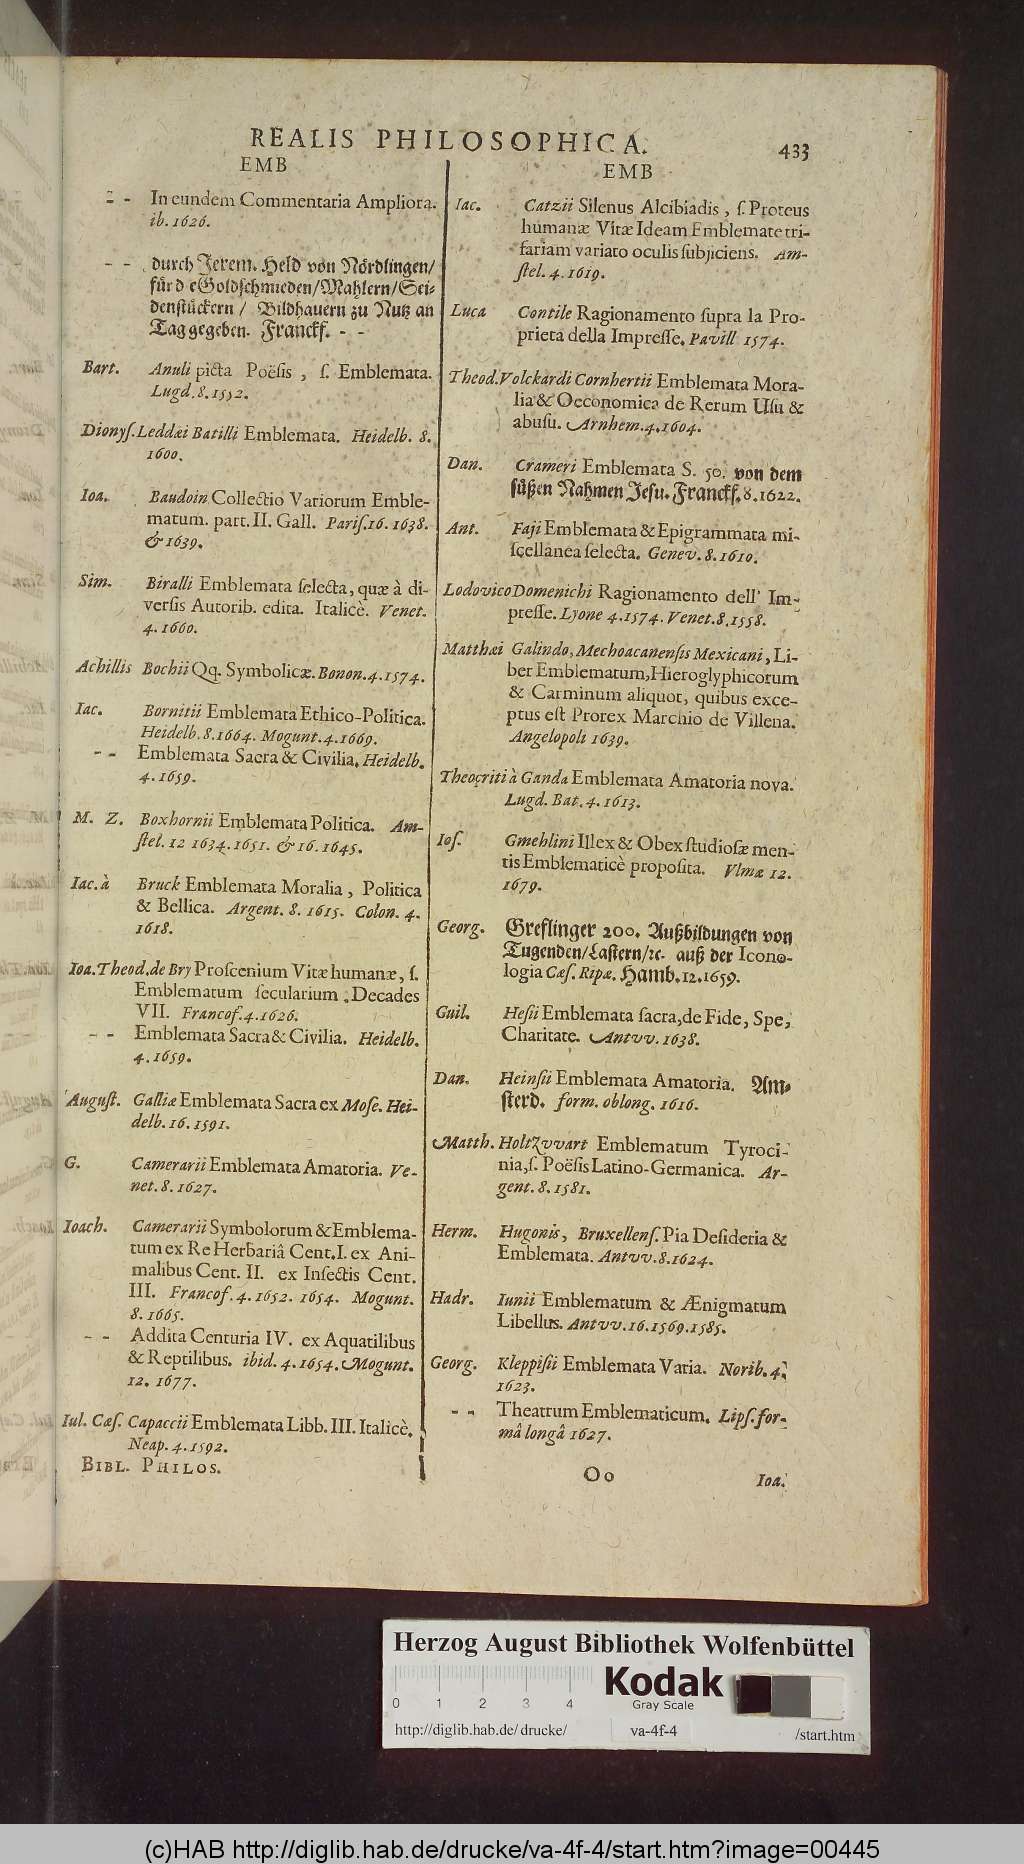 REALIS PHILOSOPHICA. 433
EMB
- - In eundem Commentaria Ampliora.
ib. 1626.
- - durch Jerem. Held von Nördlingen/
für d eGoldschmieden/Mahlern/Sei-
denstückern / Bildhauern zu Nutz an
Tag gegeben. Franckf. - -
Bart. Anuli picta Poësis, ſ. Emblemata.
Lugd. 8. 1552.
Dionyſ. Leddæi Batilli Emblemata. Heidelb. 8.
1600.
Ioa. Baudoin Collectio Variorum Emble-
matum. part. II. Gall. Pariſ. 16. 1638.
& 1639.
Sim. Biralli Emblemata ſelecta, quæ à di-
verſis Autorib. edita. Italicè. Venet.
4. 1660.
Achillis Bochii Qq. Symbolicæ. Bonon. 4. 1574.
Iac. Bornitii Emblemata Ethico-Politica.
Heidelb. 8. 1664. Mogunt. 4. 1669.
- - Emblemata Sacra & Civilia. Heidelb.
4. 1659.
M. Z. Boxhornii Emblemata Politica. Am-
ſtel. 12 1634. 1651. & 16. 1645.
Iac. à Bruck Emblemata Moralia, Politica
& Bellica. Argent. 8. 1615. Colon. 4.
1618.
Ioa. Theod. de Bry Proſcenium Vitæ humanæ, ſ.
Emblematum ſecularium. Decades
VII. Francof. 4. 1626.
- - Emblemata Sacra & Civilia. Heidelb.
4. 1659.
Auguſt. Galliæ Emblemata Sacra ex Moſe. Hei-
delb. 16. 1591.
G. Camerarii Emblemata Amatoria. Ve-
net. 8. 1627.
Ioach. Camerarii Symbolorum & Emblema-
tum ex Re Herbariâ Cent. I. ex Ani-
malibus Cent. II. ex Inſectis Cent.
III. Francof. 4. 1652. 1654. Mogunt.
8. 1665.
- - Addita Centuria IV. ex Aquatilibus
& Reptilibus. ibid. 4. 1654. Mogunt.
12. 1677.
Iul. Cæſ. Capaccii Emblemata Libb. III. Italicè.
Neap. 4. 1592.
BIBL. PHILOS.
EMB
Iac. Catzii Silenus Alcibiadis, ſ. Proteus
humanæ Vitæ Ideam Emblemate tri-
fariam variato oculis ſubjiciens. Am-
ſtel. 4. 1619.
Luca Contile Ragionamento ſupra la Pro-
prieta della Impreſſe. Pavill 1574.
Theod. Volckardi Cornhertii Emblemata Mora-
lia & Oeconomica de Rerum Uſu &
abuſu. Arnhem. 4. 1604.
Dan. Crameri Emblemata S. 50. von dem
ſüßen Nahmen Jeſu. Franckf. 8. 1622.
Ant. Faji Emblemata & Epigrammata mi-
ſcellanea ſelecta. Genev. 8. 1610.
Lodovico Domenichi Ragionamento dell' Im-
preſſe. Lyone 4. 1574. Venet. 8. 1558.
Matthæi Galindo, Mechoacanenſis Mexicani, Li-
ber Emblematum, Hieroglyphicorum
& Carminum aliquot, quibus exce-
ptus eſt Prorex Marchio de Villena.
Angelopoli 1639.
Theocriti à Ganda Emblemata Amatoria nova.
Lugd. Bat. 4. 1613.
Ioſ. Gmehlini Illex & Obex ſtudioſæ men-
tis Emblematicè propoſita. Vlmæ 12.
1679.
Georg. Greflinger 200. Außbildungen von
Tugenden/Laſtern/ꝛc. auß der Icono-
logia Cæſ. Ripæ. Hamb. 12. 1659.
Guil. Heſii Emblemata ſacra, de Fide, Spe,
Charitate. Antvv. 1638.
Dan. Heinſii Emblemata Amatoria. Am-
ſterd. form. oblong. 1616.
Matth. Holtzvvart Emblematum Tyroci-
nia, ſ. Poëſis Latino-Germanica. Ar-
gent. 8. 1581.
Herm. Hugonis, Bruxellenſ. Pia Deſideria &
Emblemata. Antvv. 8. 1624.
Hadr. Iunii Emblematum & Ænigmatum
Libellus. Antvv. 16. 1569. 1585.
Georg. Kleppiſii Emblemata Varia. Norib. 4.
1623.
- - Theatrum Emblematicum. Lipſ. for-
mâ longâ 1627.
Oo Ioa.
Herzog August Bibliothek Wolfenbüttel
Kodak
Gray Scale
0 1 2 3 4
http://diglib.hab.de/drucke/ va-4f-4 /start.htm
(c)HAB http://diglib.hab.de/drucke/va-4f-4/start.htm?image=00445